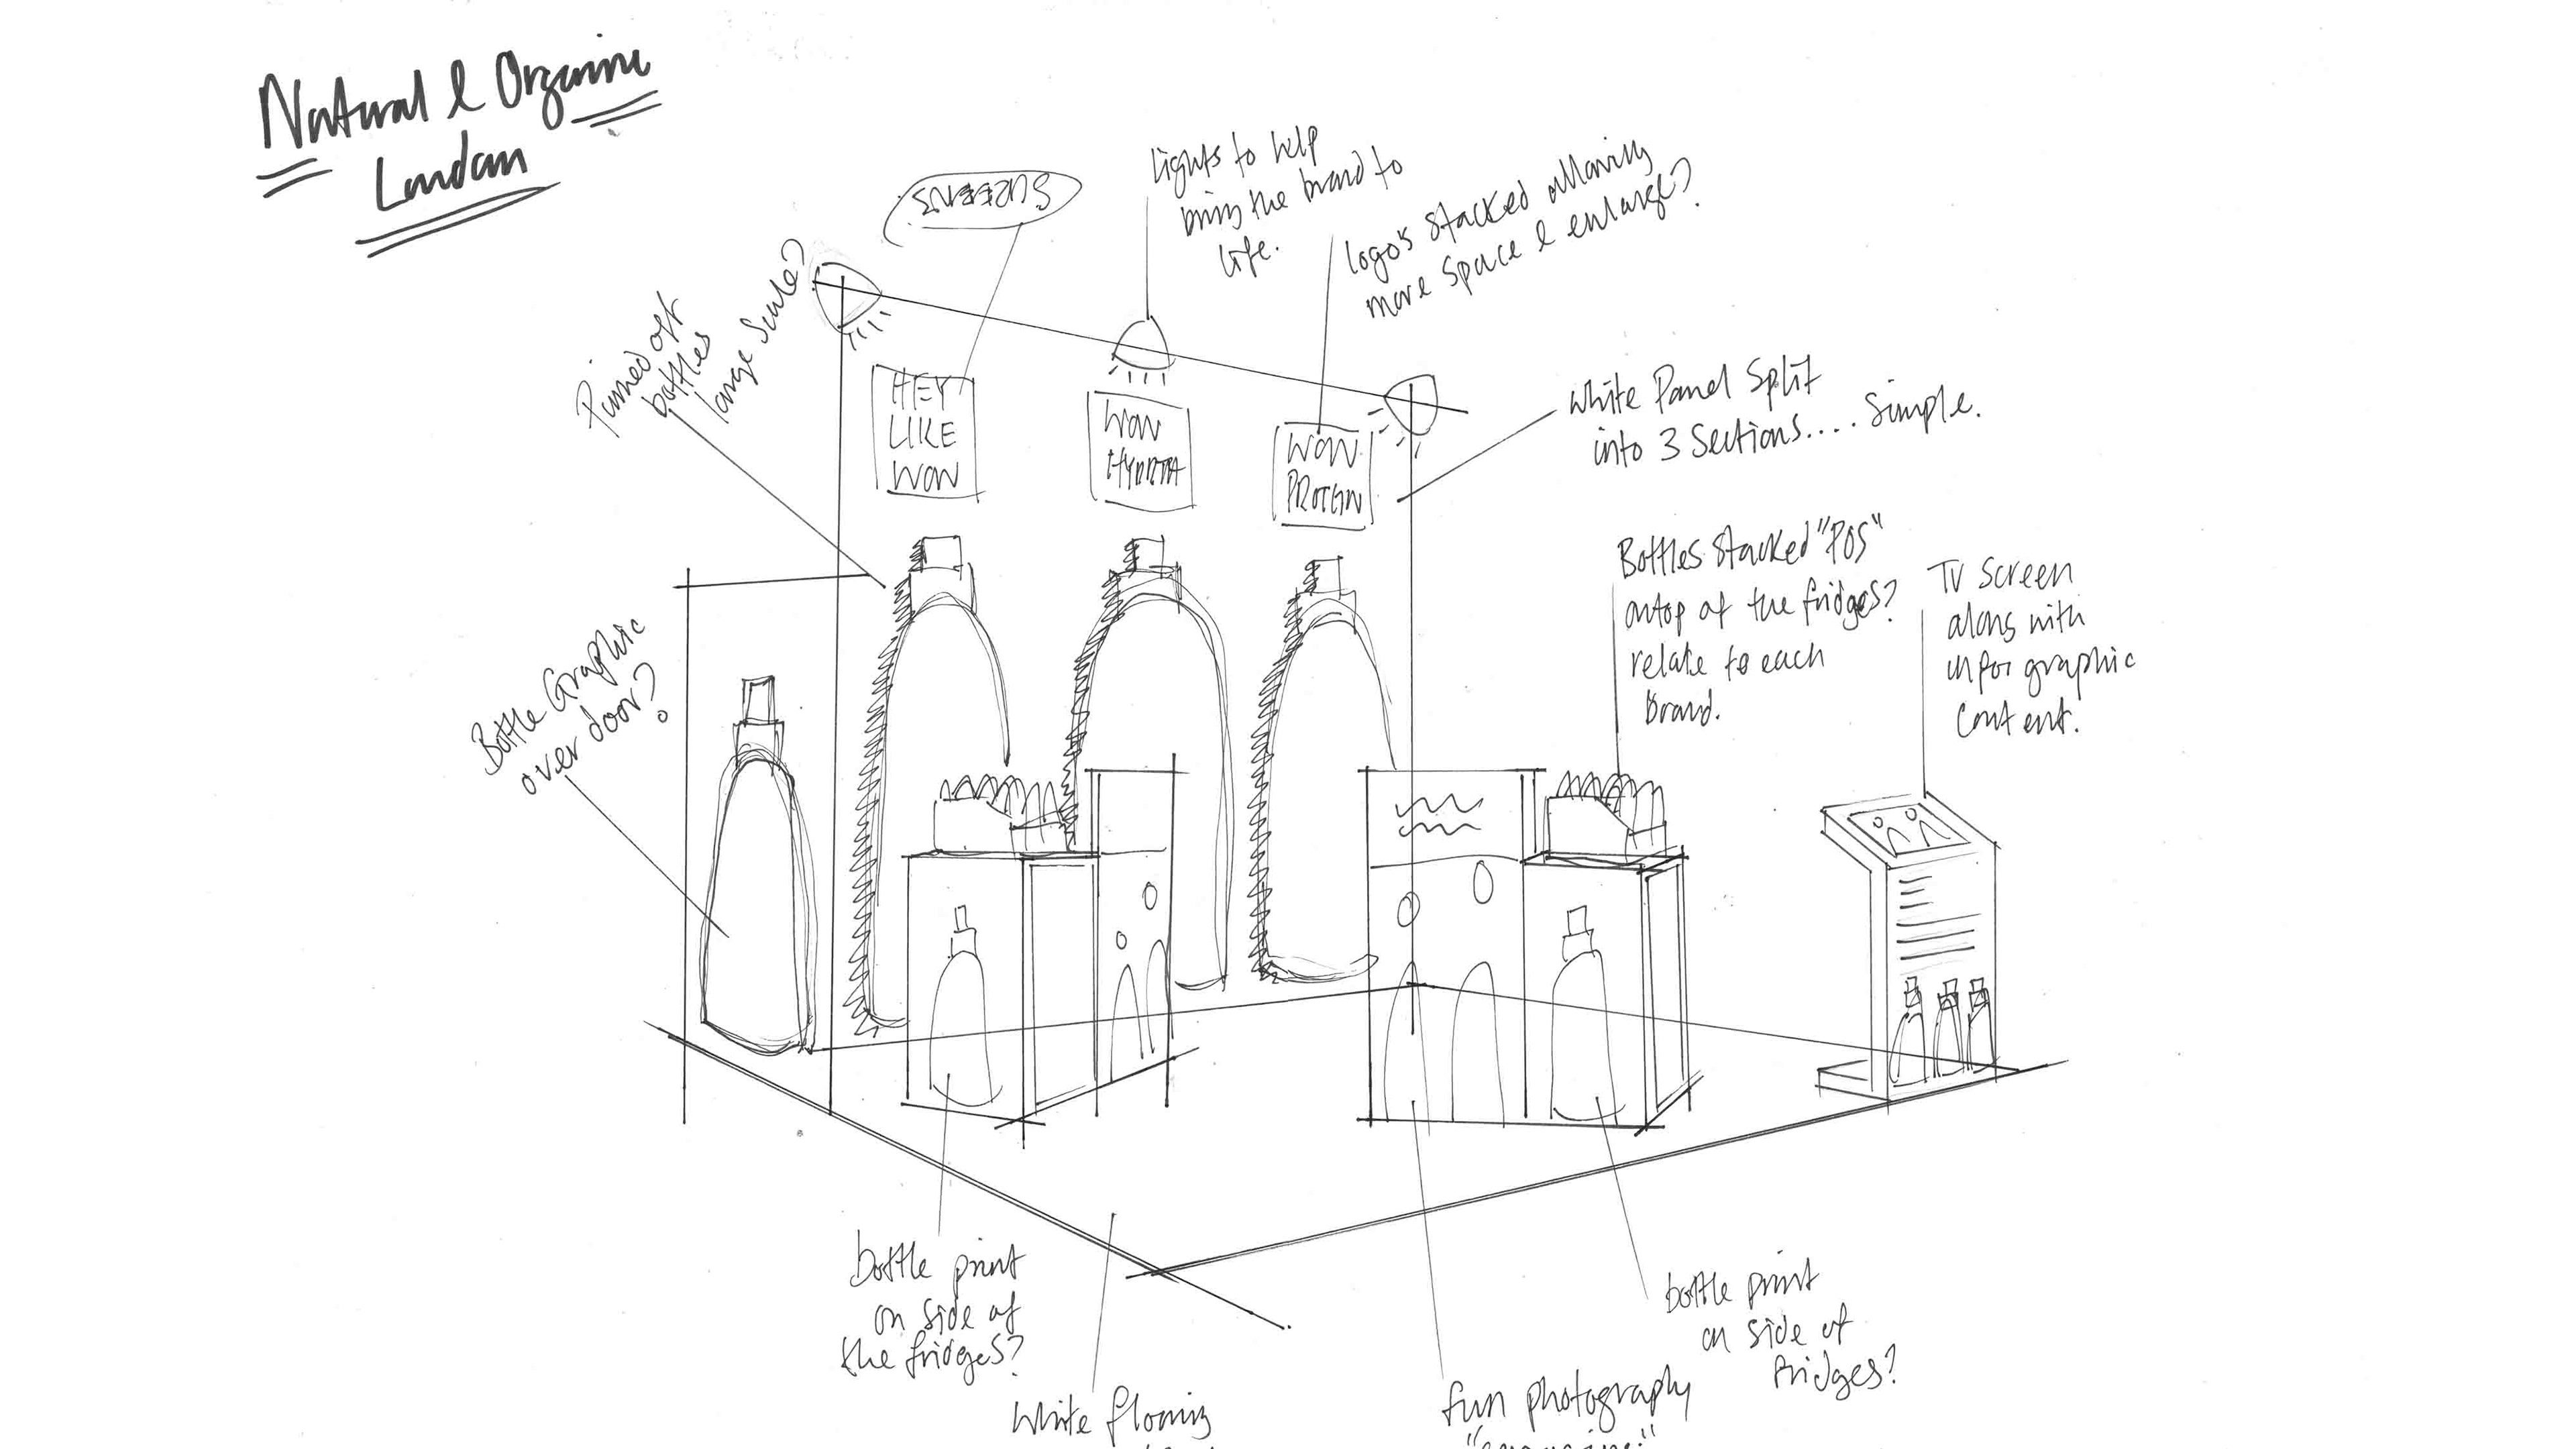 Natural & Organic
London
SCREENS
Lights to help
bring the brand to
life.
logo's stacked allowing
more space & enlarge?
Pinned off
bottles
large scale?
HEY
LIKE
WOW
WOW
HYDRA
WOW
PROTEIN
White Panel Split
into 3 Sections.... Simple.
Bottles Stacked "POS"
ontop of the fridges?
relate to each
Brand.
TV Screen
along with
infor graphic
content.
Bottle Graphic
over door?
bottle print
on side of
the fridges?
bottle print
on side of
fridges?
White flooring
fun photography